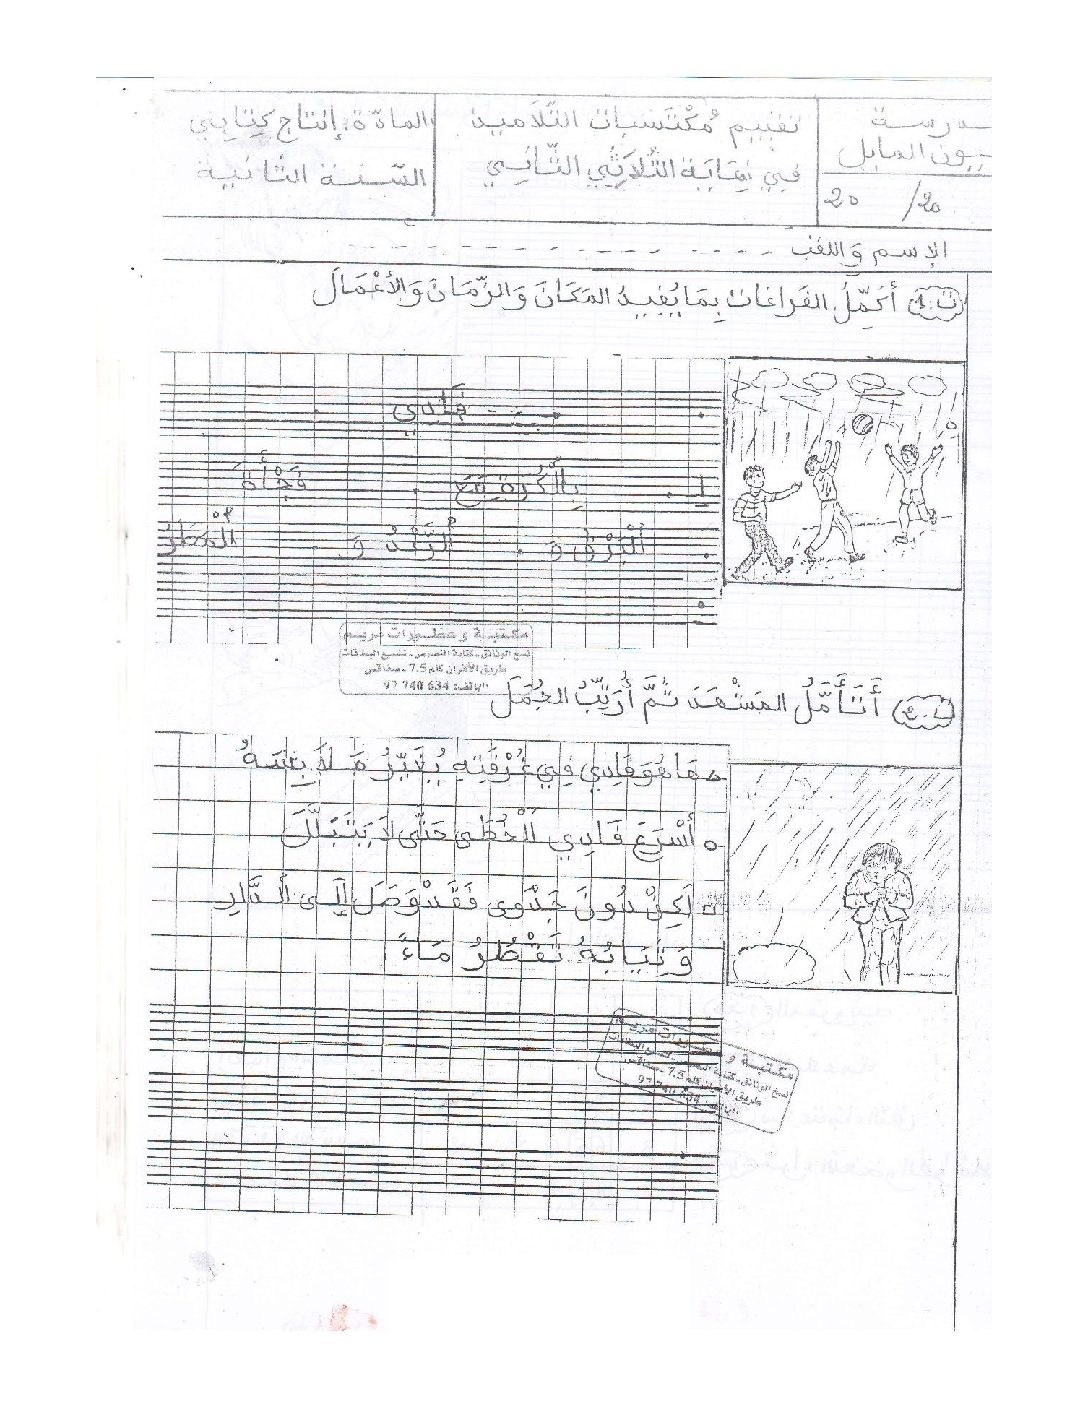 مدرسة
عيون المايل
20 /20
تقييم مُكْتَسَبَات التّلَاميذ
في نِهَايَة الثُلاَثِي الثَّانِي
المادّة: إنتاج كِتابي
السّنة الثّانية
الإسم وَاللّقب
ت1 أُكَمِّلُ الفَرَاغَات بِمَا يُفِيدُ المَكَانَ وَالزّمَانَ وَالأَعْمَالَ
فَادِي
بِالْكُرَةِ مَعَ فَجْأَةً
الْبَرْقُ وَ الرَّعْدُ وَ الْمَطَرُ
مكتبة و مطبوعات مريم
نسخ الوثائق - كتابة النصوص - تنسيخ البحوث
طريق الأفران كلم 7.5 - صفاقس
الهاتف: 634 740 97
ت2 أَتَأَمَّلُ المَشْهَدَ ثُمَّ أُرَتِّبُ الجُمَلَ
هَا هُوَ فَادِي فِي غُرْفَتِهِ يُغَيِّرُ مَلاَبِسَهُ
أَسْرَعَ فَادِي الْخُطَى حَتَّى لاَ يَتَبَلَّلَ
لَكِنْ دُونَ جَدْوَى فَقَدْ وَصَلَ إِلَى الدَّارِ
وَثِيَابُهُ تَقْطُرُ مَاءً